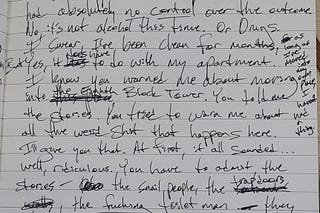 had absolutely no control over the outcome.
No, it's not alcohol this time. Or Drugs.
I swear, I've been clean for months, as
long as
But Yes, it has to do with my apartment.
I know you warned me about moving
into the Black Tower. You told me
the stories. You tried to warn me about
all the weird shit that happens here.
I'll give you that. At first, it all sounded...
well, ridiculous. You have to admit the
stories – the snail people, the trapdoors,
the fucking toilet man — they